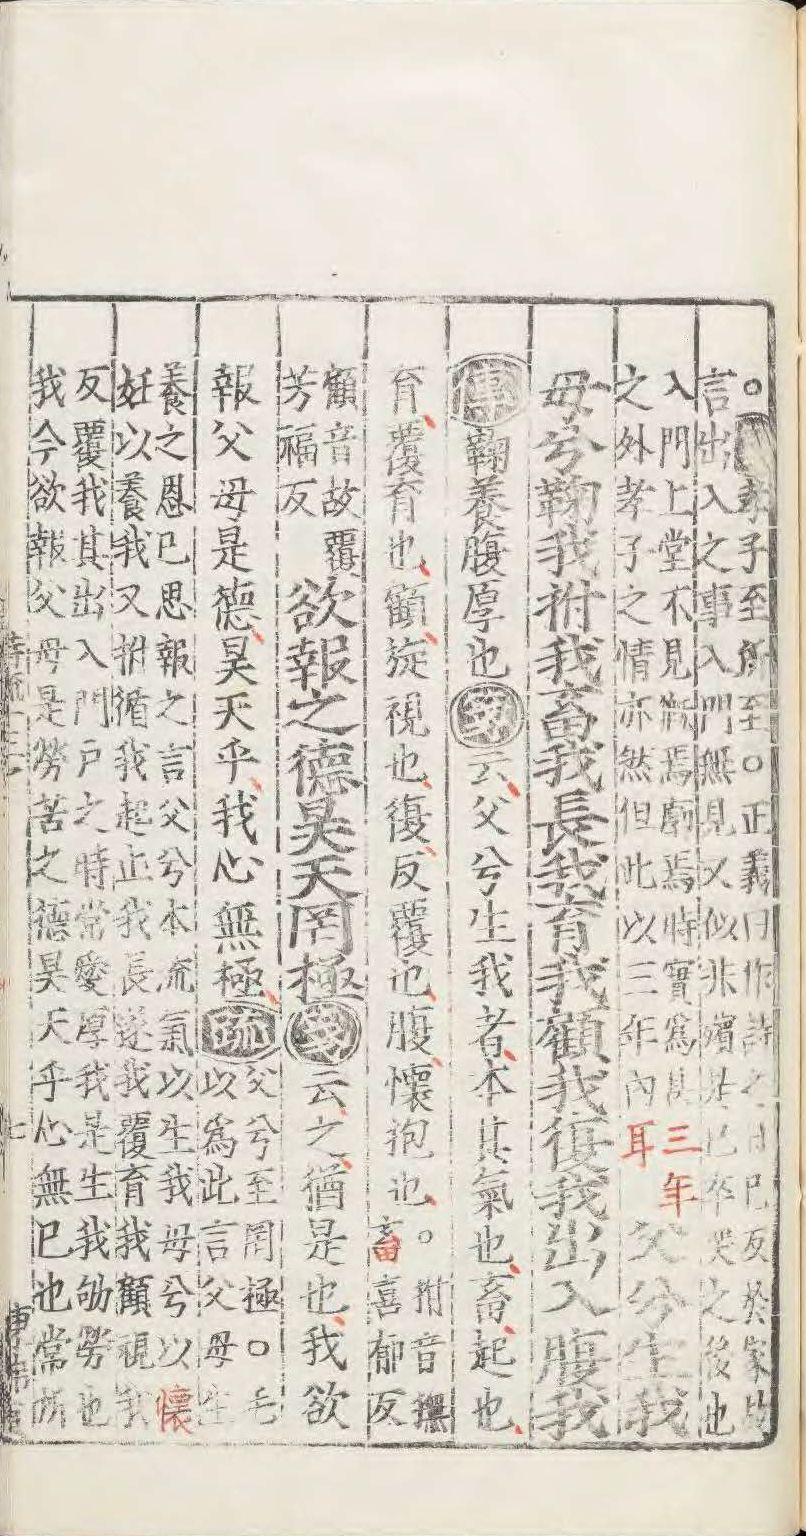 ○孝子至所至○正義曰作詩之日已反於家故
言出入之事入門無見又似非殯是已卒哭之後也
入門上堂不見慨焉廓焉時實為其三年
之外孝子之情亦然但此以三年內耳
父兮生我
母兮鞠我拊我畜我長我育我顧我復我出入腹我
傳鞠養腹厚也箋云父兮生我者本其氣也畜起也
育覆育也顧旋視也復反覆也腹懷抱也。
拊音撫
畜喜郁反
顧音故覆
芳福反
欲報之德昊天罔極箋云之猶是也我欲
報父母是德昊天乎我心無極疏
父兮至罔極○毛
以為此言父母生
養之恩已思報之言父兮本流氣以生我母兮以懷
妊以養我又拊循我起止我長遂我覆育我顧視我
反覆我其出入門戶之時常愛厚我是生我劬勞也
我今欲報父母是勞苦之德昊天乎心無已也常所
七